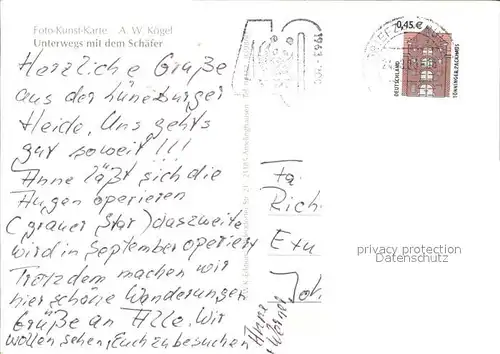 Foto-Kunst-Karte A. W. Kögel
Unterwegs mit dem Schäfer
Herzliche Grüße
aus der Lüneburger
Heide. Uns gehts
gut soweit!!!
Anne läßt sich die
Augen operieren
(grauer Star) das zweite
wird in September operiert
Trotzdem machen wir
hier schöne Wanderungen
Grüße an Alle. Wir
wollen sehen, Euch zu besuchen
Anna
Werner
1963
BRIEFZENTRUM
0,45 €
DEUTSCHLAND
TÖNNINGER PACKHAUS
Fa.
Rich
Extu
Joh.
privacy protection
Datenschutz